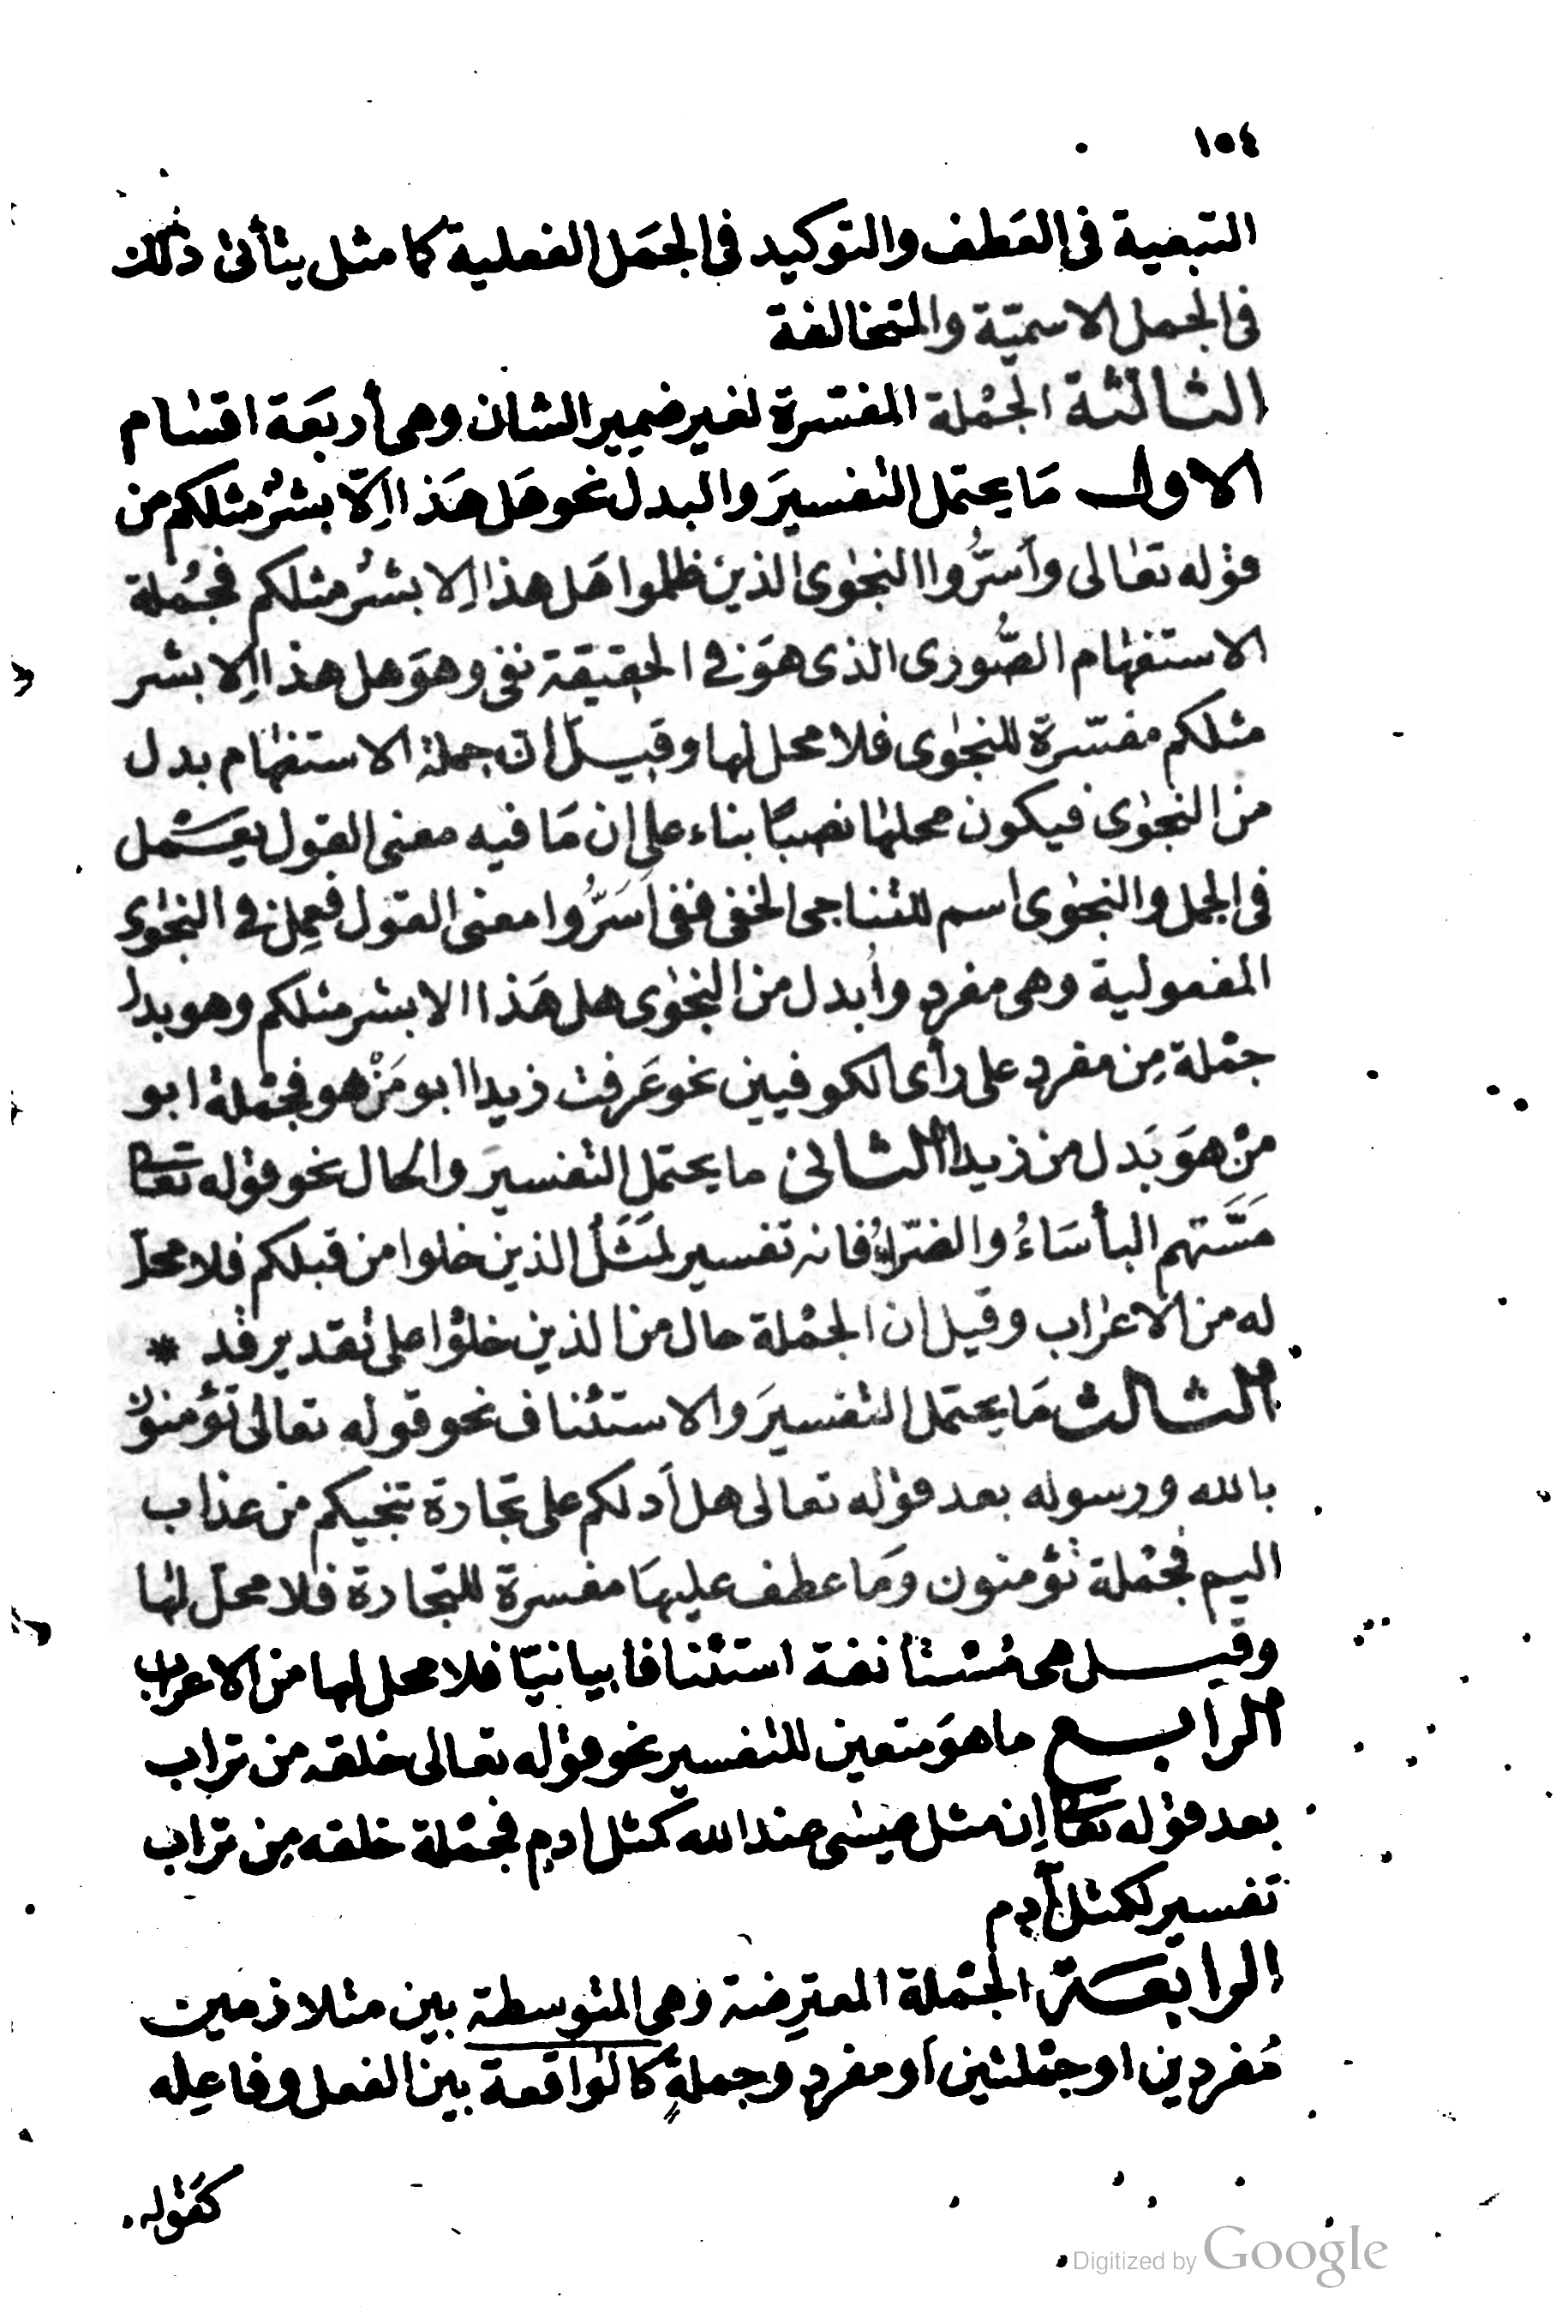 ١٥٤
التبعية فى العَطف والتوكيد فى الجمَل الفعلية كما مثل يتأتى ذلك
فى الجمل الاسميّة والمتخالفة
الثالثة الجمْلة المفسّرة لغير ضمير الشان وهى أربعَة اقسَام
الاول مَا يحتمل التفسيرَ والبدل نحو هَل هَذا اِلّا بشرٌ مثلكم من
قوْله تعَالى وأسَرُّوا النجوٰى الذين ظلموا هَل هذا اِلا بشرٌ مثلكم فجُملة
الاستفهَام الصُّورى الذى هوَ فى الحقيقة نفى وهوَ هل هذا اِلا بشر
مثلكم مفسّرة للنجوٰى فلا محل لها وقيل ان جملة الاستفهَام بدل
من النجوٰى فيكون محلهَا نصبًا بناء على ان مَا فيه معنى القول يعمل
فى الجمل والنجوٰى اسم للتناجى الخفى ففى اَسَرُّوا معنى القول فعمل فى النجوٰى
المفعولية وهى مفرد وأبدل من النجوٰى هل هَذا الا بشر مثلكم وهو بدل
جمْلة مِن مفرد على رأى الكوفيين نحو عَرفت زيدا ابو مَنْ هو فجمْلة ابو
مَنْ هوَ بَدل من زيدا الثانى ما يحتمل التفسيرَ والحال نحو قوْله تعا
مَسّتهم البأسَاءُ والضرّاءُ فانه تفسير لمَثَلُ الذين خلوا من قبلكم فلا محل
له من الاعرَاب وقيل ان الجمْلة حال من الذين خلوْا على تقدير قد *
الثالث مَا يحتمل التفسيرَ والاستئناف نحو قوله تعالى تؤمنون
بالله ورسوله بعد قوْله تعالى هل أدلكم على تجارة تنجيكم من عذاب
اليم فجمْلة تؤمنون وَما عطف عليهَا مفسرة للتجارة فلا محل لهَا
وقيل هى مُستأنفة استئنافا بيانيّا فلا محل لها من الاعراب
الرابع ما هوَ متعين للتفسير نحو قوْله تعالى خلقه من تراب
بعد قوْله تعا اِن مثل عيسٰى عند الله كمثل ادم فجمْلة خلقه مِن تراب
تفسير لكمثل آدم
الرابعَة الجمْلة المعترِضة وهى المتوسطة بين متلازمين
مُفردين او جمْلتين اَو مفرد وجملةٍ كالوَاقعة بين الفعل وفاعِله
كقوْله
Digitized by Google